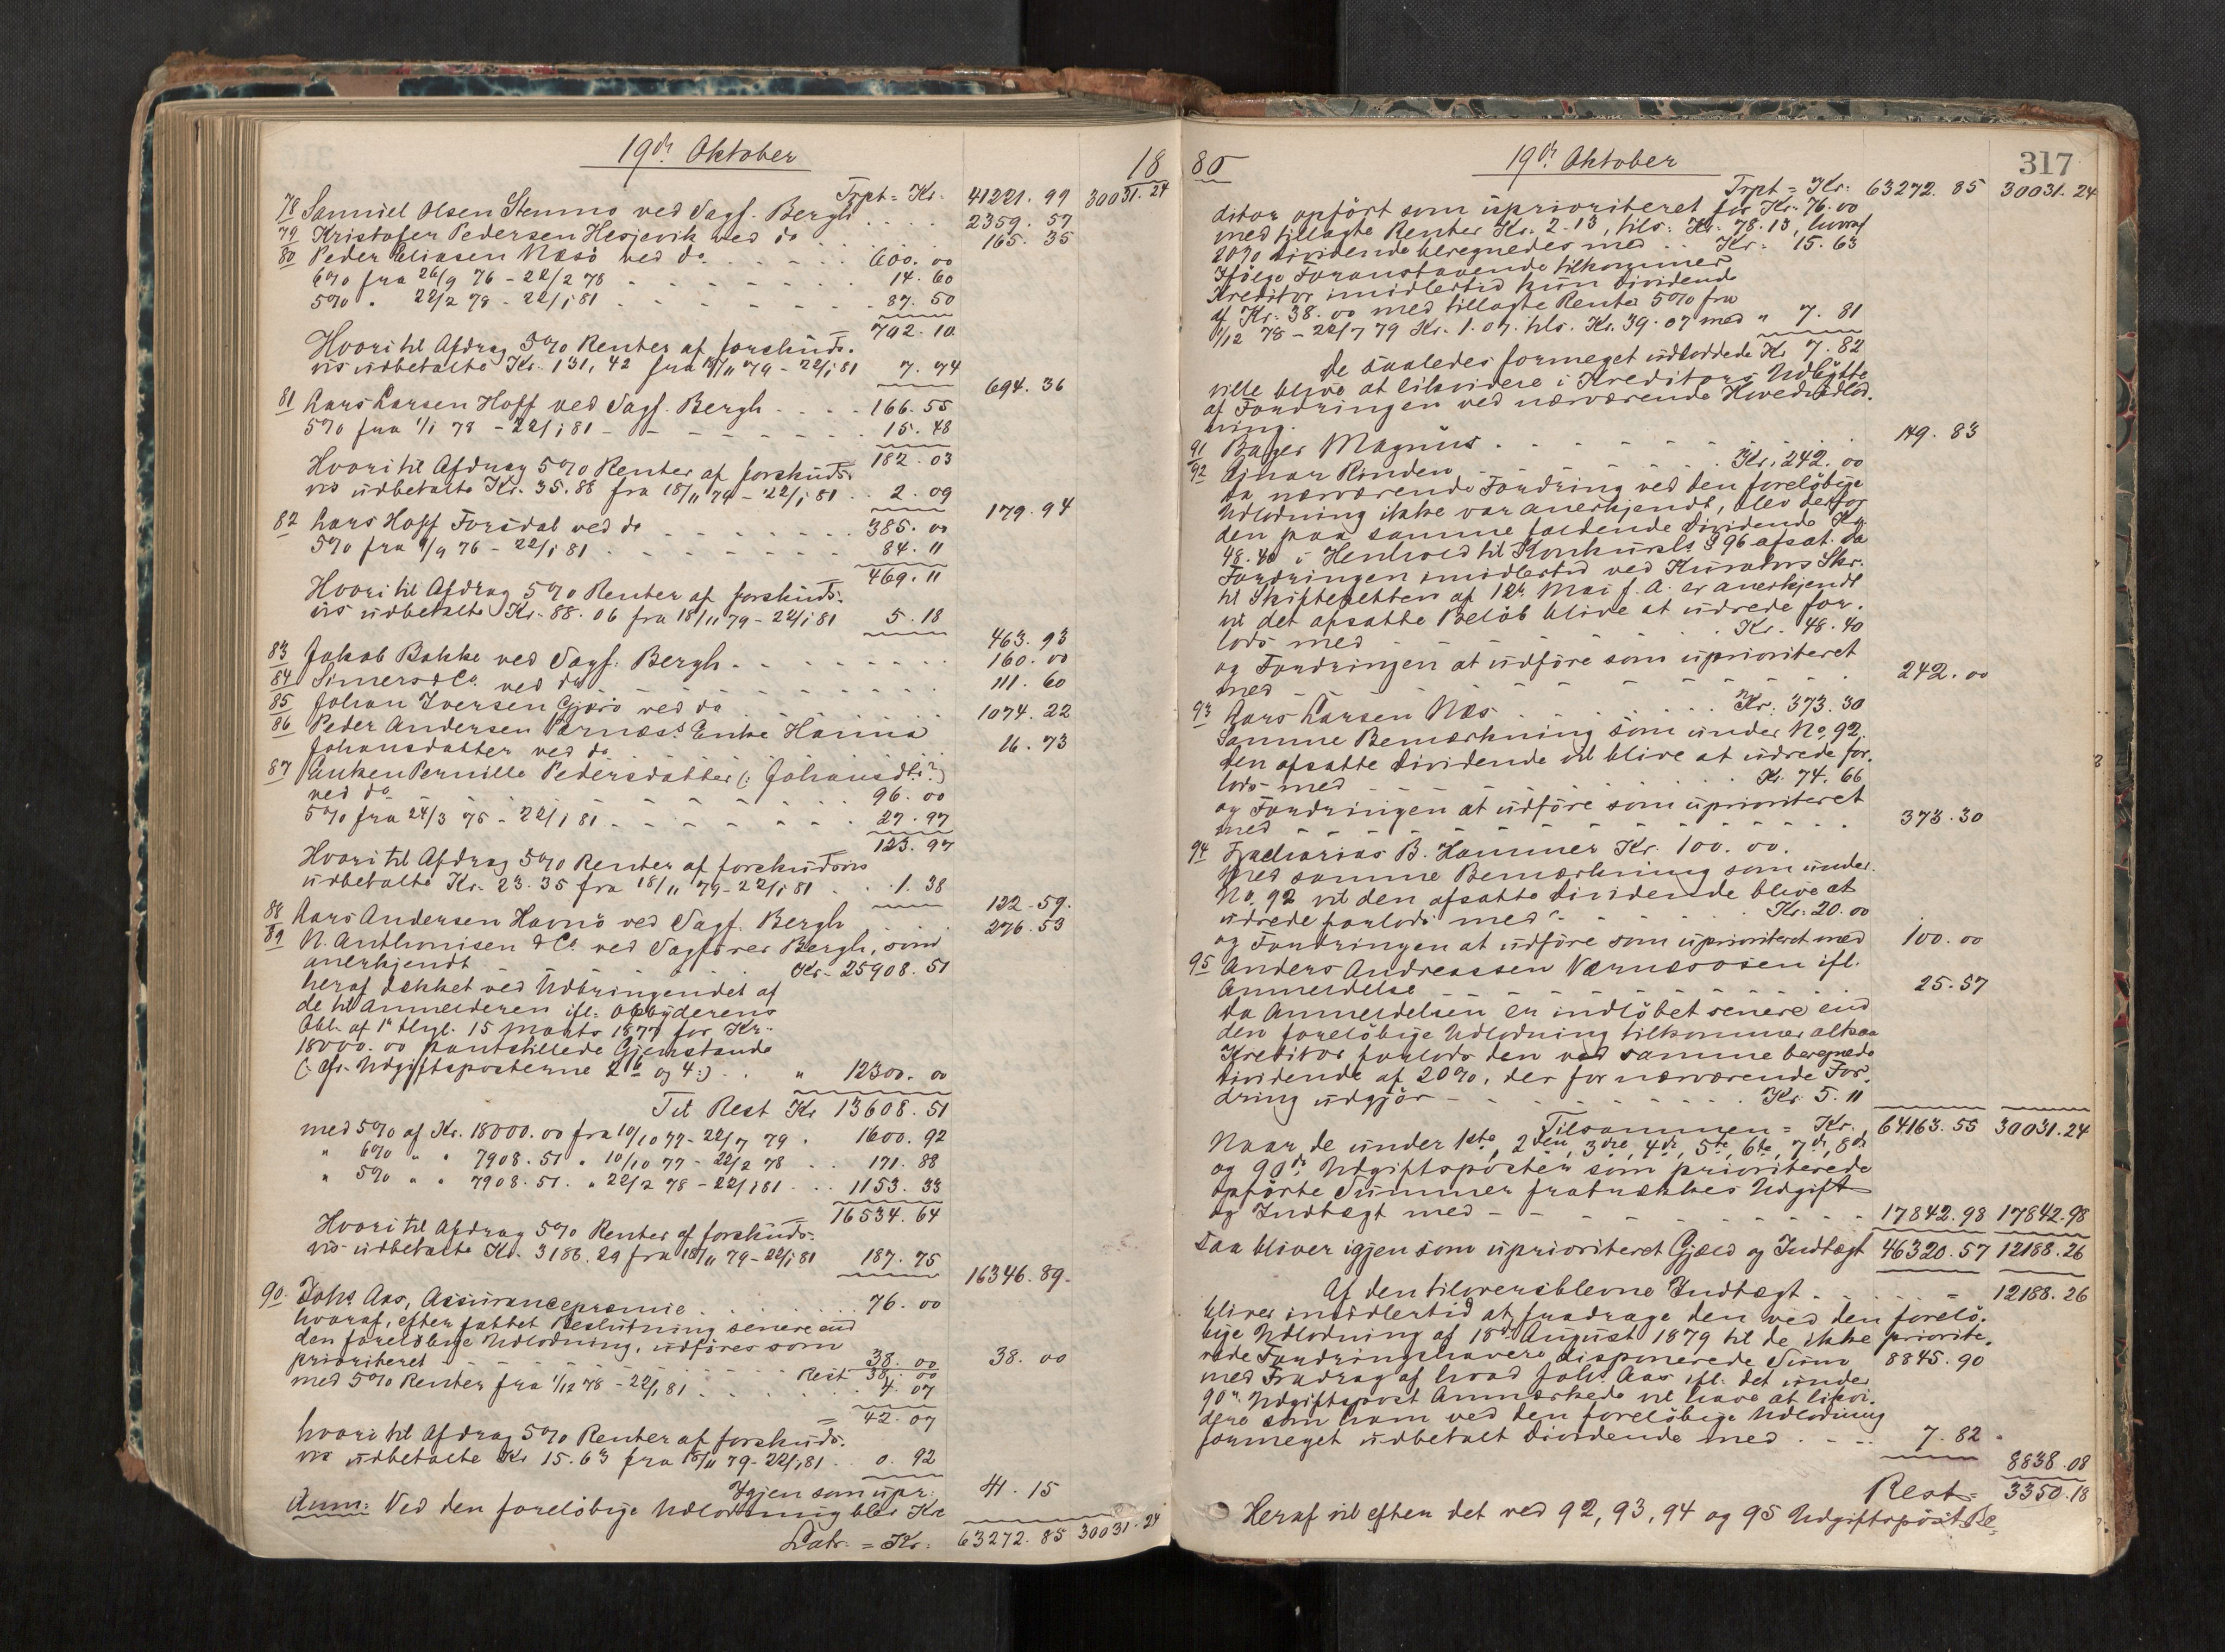 19de Oktober
18
Trpt = Kr. 41221. 99 30031. 24
78 Samuel Olsen Stemmo ved Sagf. Bergh . . . 2359. 57
79 Kristofer Pedersen Hesjevik ved do . . . 165. 35
80 Peder Eliasen Næsø ved do . . . 600. 00
6% fra 26/9 76 - 22/2 78 . . . 14. 60
5% " 22/2 78 - 22/1 81 . . . 87. 50
702. 10
Hvori til Afdrag 5% Renter af forskuds-
vis udbetalte Kr. 131, 42 fra 18/11 79 - 22/1 81 7. 74
694. 36
81 Lars Larsen Hoff ved Sagf. Bergh . . . 166. 55
5% fra 1/1 78 - 22/1 81 - - - 15. 48
182. 03
Hvori til Afdrag 5% Renter af forskuds-
vis udbetalte Kr. 35. 88 fra 18/11 79 - 22/1 81 . . 2. 09
179. 94
82 Lars Hoff Forsdal ved do . . . 385. 00
5% fra 1/9 76 - 22/1 81 . . . 84. 11
469. 11
Hvori til Afdrag 5% Renter af forskuds-
vis udbetalte Kr. 88. 06 fra 18/11 79 - 22/1 81 5. 18
463. 93
83 Jakob Bakke ved Sagf. Bergh . . . 160. 00
84 Simers & Co. ved do . . . 111. 60
85 Johan Iversen Gjærø ved do . . . 1074. 22
86 Peder Andersen Værnæss Enke Hanna
Johansdatter ved do . . . 16. 73
87 Anken Pernille Pedersdatter (: Johansdt.?)
ved do . . . 96. 00
5% fra 24/3 75 - 22/1 81 - - - 27. 97
123. 97
Hvori til Afdrag 5% Renter af forskudsvis
udbetalte Kr. 23. 35 fra 18/11 79 - 22/1 81 . . 1. 38
122. 59.
88 Lars Andersen Havnø ved Sagf. Bergh . . . 276. 53
89 N. Anthonisen & Co ved Sagfører Bergh, som
anerkjendt . . . Kr. 25908. 51
heraf dækket ved Udbringendet af
de til Anmelderen ifl. Opbyderens
Obl. af 1 tlyl. 15 Marts 1877 for Kr.
18000. 00 pantstillede Gjenstande
(: cfr. Udgiftsposterne 2 b og 4:) . . " 12300. 00
Til Rest Kr 13608. 51
med 5% af Kr. 18000. 00 fra 10/10 77 - 22/7 79 . 1600. 92
" 6% " " 7908. 51 " 10/10 77 - 22/2 78 . . 171. 88
" 5% " " 7908. 51. " 22/2 78 - 22/1 81 . . 1153. 33
16534. 64
Hvori til Afdrag 5% Renter af forskuds-
vis udbetalte Kr. 3186. 29 fra 18/11 79 - 22/1 81 187. 75
16346. 89.
90. Johs Aas, Assurancepræmie . . . 76. 00
hvoraf, efter fattet Beslutning senere end
den foreløbige Udlodning, udføres som
prioriteret - - - 38. 00 38. 00
Rest 38. 00
med 5% Renter fra 1/12 78 - 22/1 81 . . . 4. 07
= 42. 07
hvori til Afdrag 5% Renter af forskuds-
vis udbetalte Kr 15. 63 fra 18/11 79 - 22/1 81 . . 0. 92
Igjen som upr: 41. 15
Anm: Ved den foreløbige Udlodning blev Kre
Latr. = Kr: 63272. 85 30031. 24
80
19de Oktober
317
Trpt = Kr: 63272. 85 30031. 24
ditor opført som uprioriteret for Kr. 76. 00
med tillagte Renter Kr. 2. 13, tils: Kr. 78. 13, hvoraf
20% Dividende beregnedes med . . Kr: 15. 63
Ifølge Foranstaaende tilkommer
Kreditor imidlertid kun Dividende
af Kr. 38. 00 med tillagte Renter 5% fra
1/12 78 - 22/7 79 Kr. 1. 07. tils. Kr. 39. 07 med " 7. 81
De saaledes formeget udloddede Kr 7. 82
ville blive at likvidere i Kreditors Udbytte
af Fordringen ved nærværende Hovedudlod-
ning.
91 Bager Magnus . . . 149. 83
92 Ejnar Rinden . . . Kr: 242. 00
Da nærværende Fordring ved den foreløbige
Udlodning ikke var anerkjendt, blev derfor
den paa samme faldende Dividende Kr.
48. 40 i Henhold til Konkursls § 96 afsat. Da
Fordringen imidlertid ved Kurators Skr.
til Skifteretten af 12te Mai f. A. er anerkjendt
vil det afsatte Beløb blive at udrede for-
lods med . . . Kr. 48. 40
og Fordringen at udføre som uprioriteret
med - - - 242. 00
93 Lars Larsen Næs . . . Kr: 373. 30
Samme Bemærkning som under No. 92.
Den afsatte Dividende vil blive at udrede for-
lods med . . . Kr. 74. 66
og Fordringen at udføre som uprioriteret
med - - - 373. 30
94 Zacharias B. Hammer Kr. 100. 00.
Med samme Bemærkning som under
No. 92 vil den afsatte Dividende blive at
udrede forlods med - - - Kr: 20. 00
og Fordringen at udføre som uprioriteret med 100. 00
95 Anders Andreassen Værnæsosen ifl.
Anmeldelse - - - 25. 57
Da Anmeldelsen er indløbet senere end
den foreløbige Udlodning tilkommer altsaa
Kreditor forlods den ved samme beregnede
Dividende af 20%, der for nærværende For-
dring udgjør - - - Kr. 5. 11
Tilsammen = Kr. 64163. 55 30031. 24
Naar de under 1ste, 2den, 3die, 4de, 5te, 6te, 7de, 8de
og 90de Udgiftsposter som prioriterede
opførte Summer fratrækkes Udgift
og Indtægt med - - - 17842. 98 17842. 98
Saa bliver igjen som uprioriteret Gjæld og Indtægt 46320. 57 12188. 26
Af den tiloversblevne Indtægt . . . 12188. 26
bliver imidlertid at fradrage den ved den foreløbi-
bige Udlodning af 18de August 1879 til de ikke priorite-
rede Fordringshavere disponerede Sum 8845. 90
med Fradrag af hvad Johs Aas ifl. det under
90de Udgiftspost Anmærkede vil have at likvi-
dere som ham ved den foreløbige Udlodning
formeget udbetalt Dividende med . - . . 7. 82
8838. 08
Rest = 3350. 18
Heraf vil efter det ved 92, 93, 94 og 95 Udgiftspost Be-